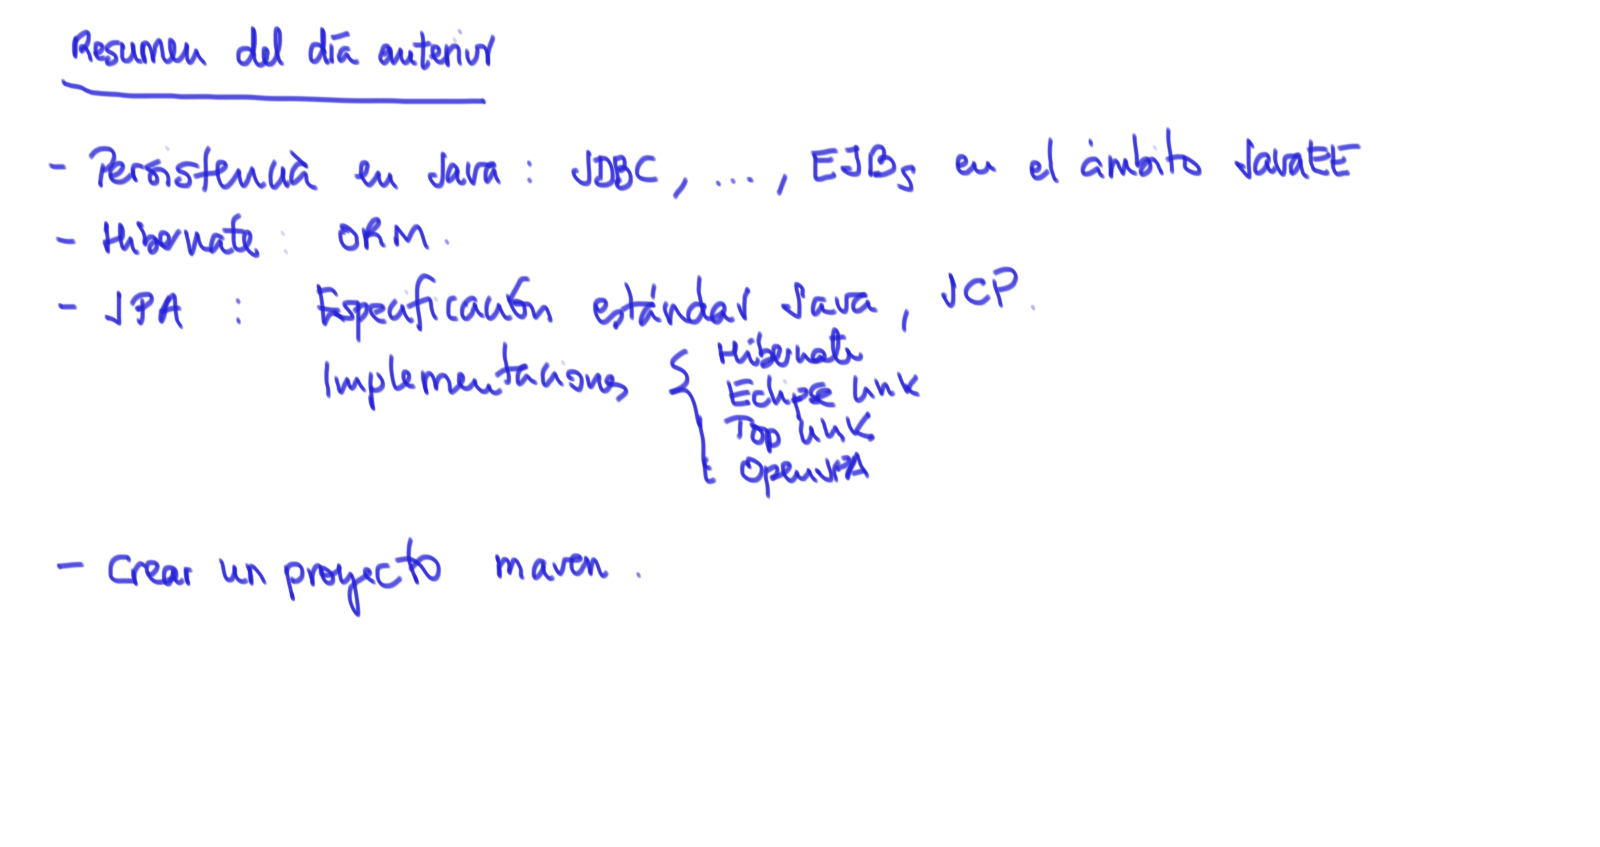 Resumen del día anterior
- Persistencia en Java : JDBC, ..., EJBs en el ámbito JavaEE
- Hibernate : ORM.
- JPA : Especificación estándar Java, JCP.
Implementaciones { Hibernate
Eclipse Link
Top Link
OpenJPA
- Crear un proyecto maven.